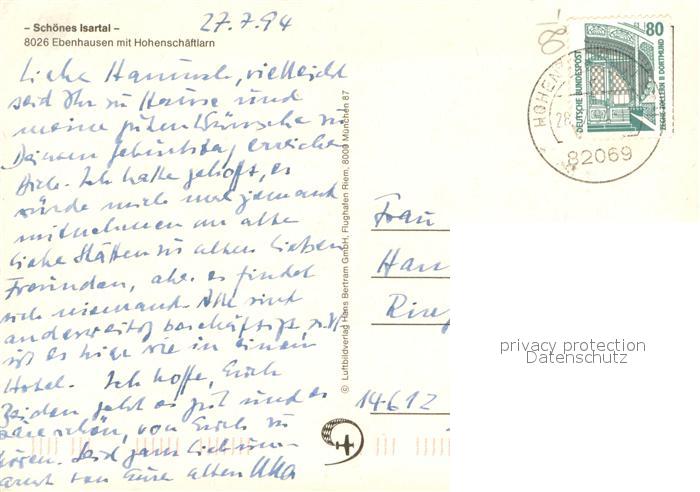 27.7.94
– Schönes Isartal –
8026 Ebenhausen mit Hohenschäftlarn
Liebe Hannush, vielleicht
seid Ihr zu Hause und
meine guten Wünsche zu
Deinem Geburtstag erreichen
Dich. Ich hatte gehofft, es
würde mich mal jemand
mitnehmen an alte
liebe Stätten zu alten lieben
Freunden, aber es findet
sich niemand. Alle sind
anderweitig beschäftigt, z.Zt.
ist es hier wie in einem
Hotel. Ich hoffe, Euch
Beiden geht es gut und es
wäre schön, von Euch zu
hören. Seid ganz lieb um-
armt von Eurer alten
© Luftbildverlag Hans Bertram GmbH, Flughafen Riem, 8000 München 87
80
DEUTSCHE BUNDESPOST
ZECHE ZOLLERN II DORTMUND
HOHEN
28.
82069
Frau
Han
Ring
14612
privacy protection
Datenschutz